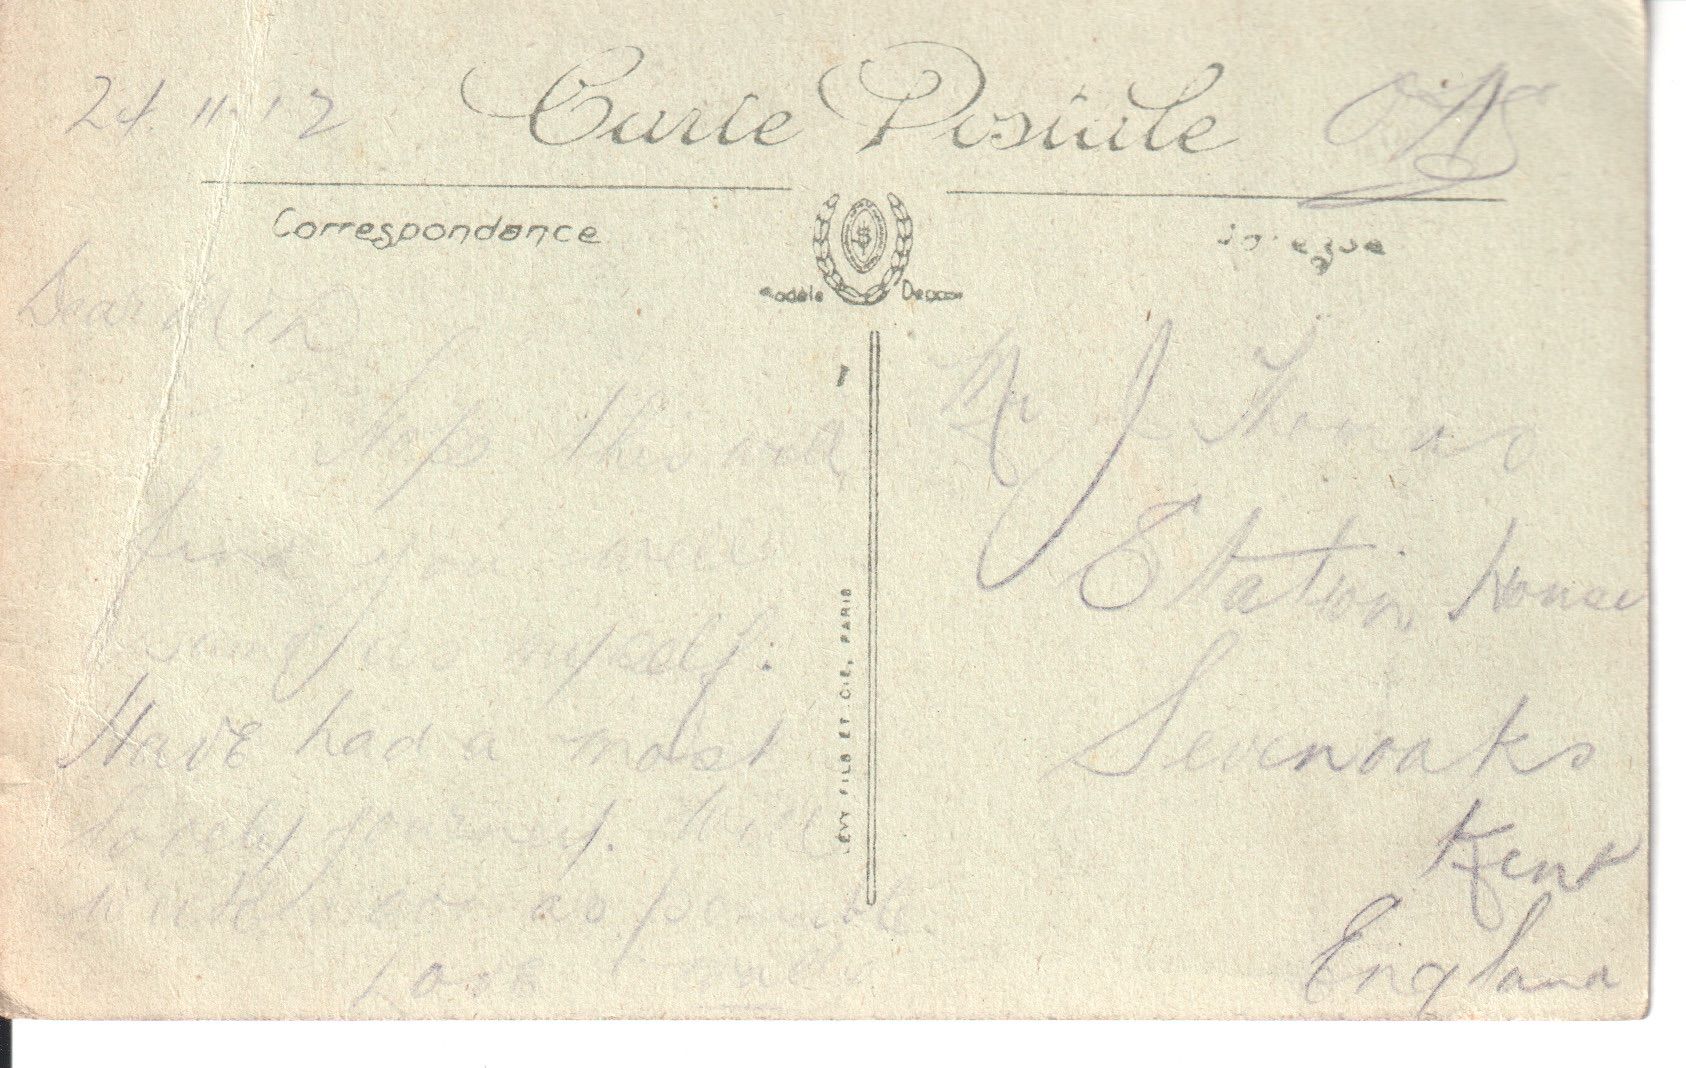 24.11.17
Carte Postale
OAS
Correspondance
Adresse
Modèle Déposé
Dear
Hope this will
find you well
same as myself.
Have had a most
lovely journey. Will
write soon as possible.
Love
LEVY FILS ET CIE, PARIS
Mr J Thomas
Station House
Sevenoaks
Kent
England